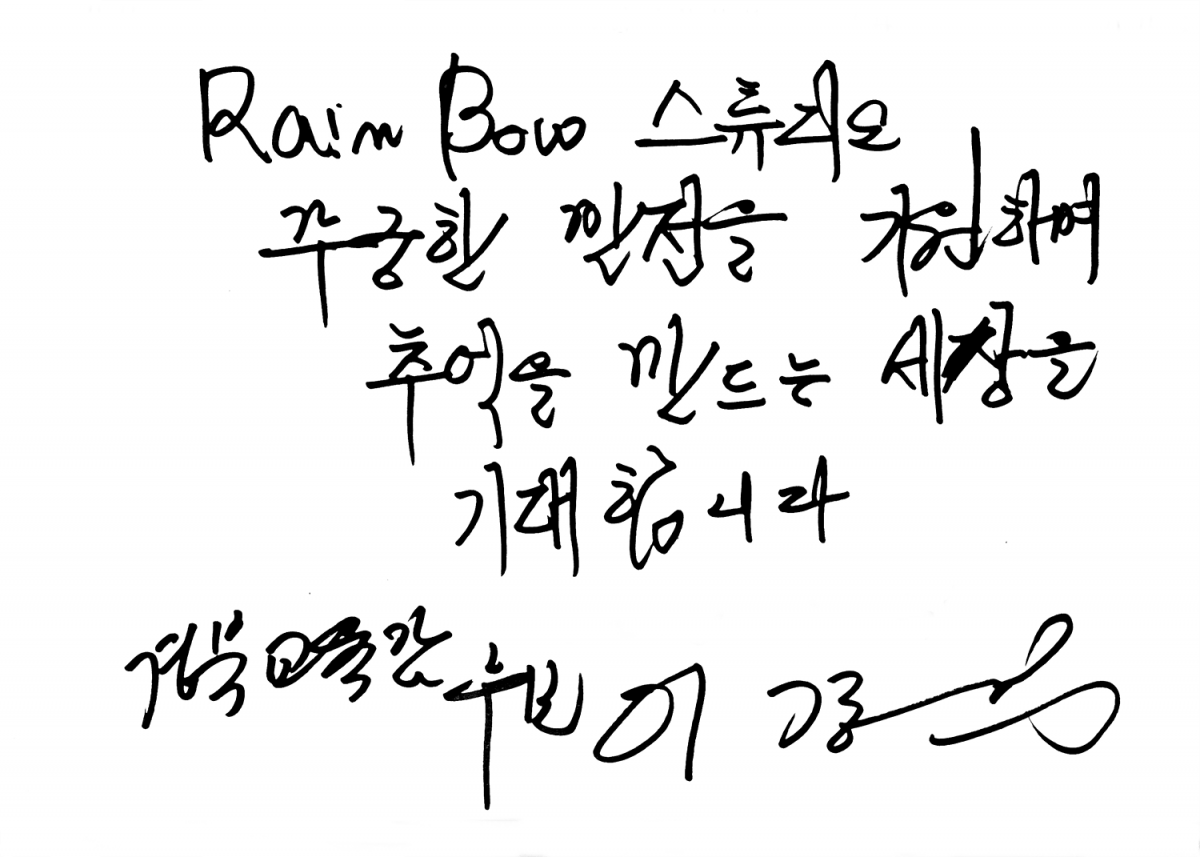 Rain Bow 스튜디오
무궁한 발전을 기원하며
추억을 만드는 세상을
기대합니다
경북교육감 후보 이